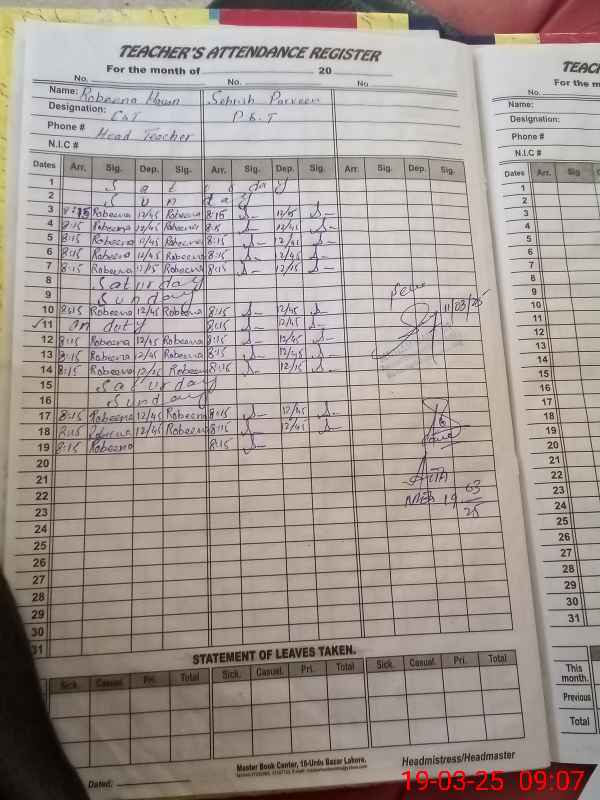 TEACHER'S ATTENDANCE REGISTER
For the month of 20
No. No. No
Name: Robeena Sehrish Parveen
Designation: P.S.T
Phone # Head Teacher
N.I.C #
Dates Arr. Sig. Dep. Sig. Arr. Sig. Dep. Sig. Arr. Sig. Dep. Sig.
1 Saturday
2 Sunday
3 8:15 Robeena 12/45 Robeena 8:15
4 8:15 Robeena 12/45 Robeena 8:15 12/45
5 8:15 Robeena 12/45 Robeena 8:15 12/45
6 8:15 Robeena 12/45 Robeena 8:15 12/45
7 8:15 Robeena 12/15 Robeena 8:15 12/15
8 Saturday
9 Sunday
10 8:15 Robeena 12/45 Robeena 8:15 12/45 11/03/25
11 on duty 8:15 12/45
12 8:15 Robeena 12/45 Robeena 8:15 12/45
13 8:15 Robeena 12/45 Robeena 8:15 12/45
14 8:15 Robeena 12/15 Robeena 8:15 12/15
15 Saturday
16 Sunday
17 8:15 Robeena 12/45 Robeena 8:15 12/45
18 8:15 Robeena 12/45 Robeena 8:15 12/45
19 8:15 Robeena 8:15
20
21
22 19 03
23 25
24
25
26
27
28
29
30
31
STATEMENT OF LEAVES TAKEN.
Sick. Casual. Pri. Total Sick. Casual. Pri. Total Sick. Casual. Pri. Total
Master Book Center, 16-Urdu Bazar Lahore.
Dated: Headmistress/Headmaster
TEAC
For the m
No.
Name:
Designation:
Phone #
N.I.C #
Dates Arr. Sig Dep.
1
2
3
4
5
6
7
8
9
10
11
12
13
14
15
16
17
18
19
20
21
22
23
24
25
26
27
28
29
30
31
This month.
Previous
Total
19-03-25 09:07